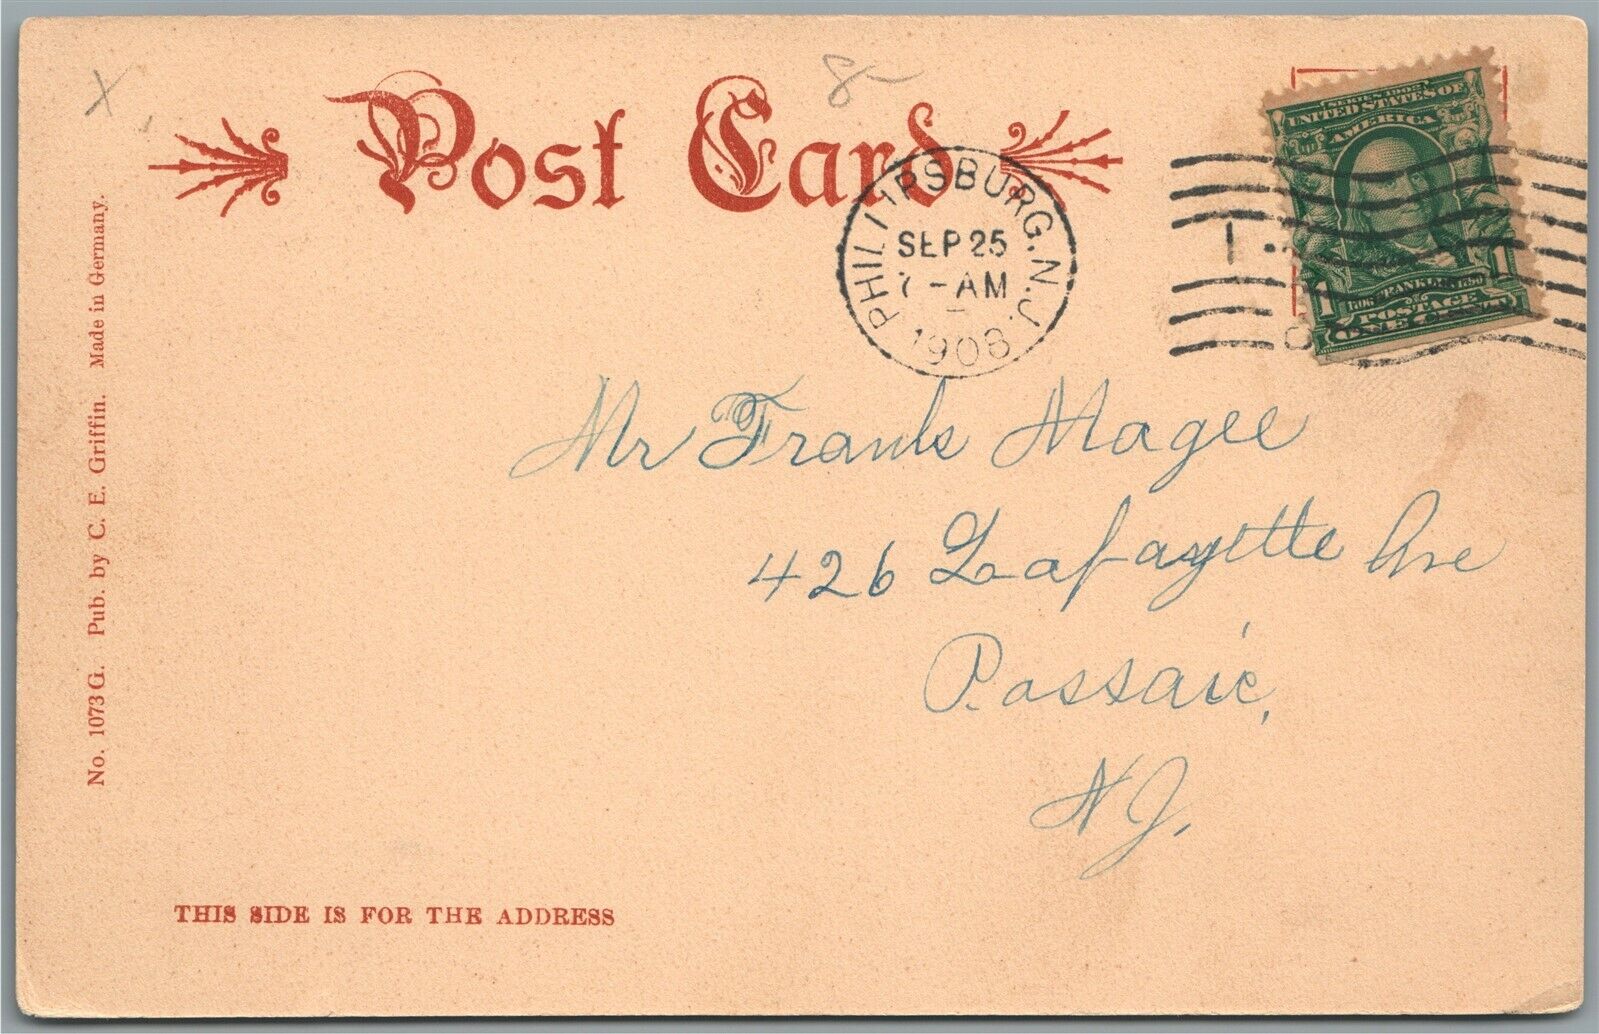 X
8-
Post Card
PHILLIPSBURG, N.J.
SEP 25
7-AM
1908
1
SERIES 1902
UNITED STATES OF
AMERICA
1706 FRANKLIN 1790
1 1
POSTAGE
ONE CENT
Mr Frank Magee
426 Lafayette Ave
Passaic,
N J.
No. 1073 G. Pub. by C. E. Griffin. Made in Germany.
THIS SIDE IS FOR THE ADDRESS